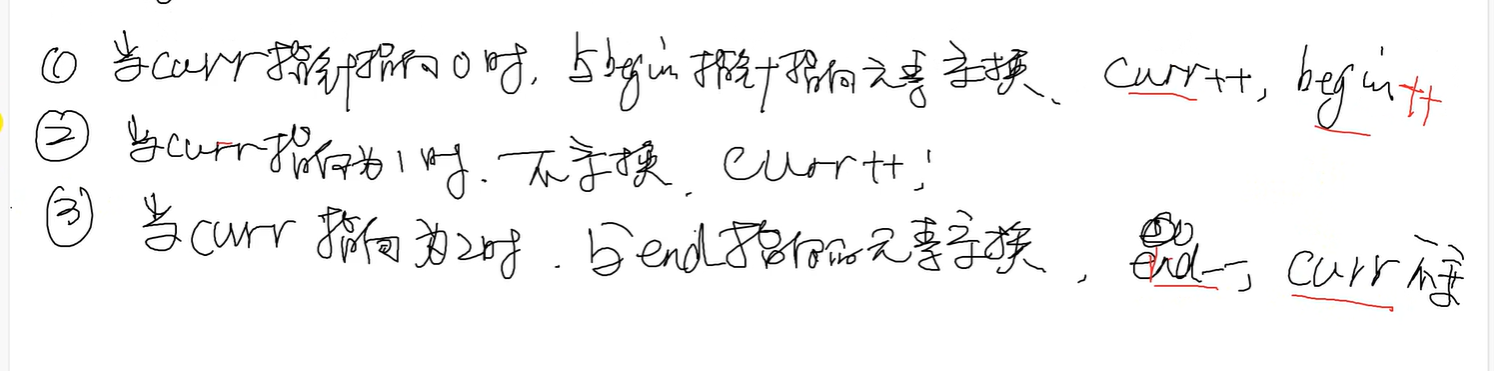 ① 当curr指针指向0时, 与begin指针指向元素交换、 curr++, begin++
② 当curr指向为1时. 不交换. curr++;
③ 当curr 指向为2时. 与end指向的元素交换, end--, curr不变